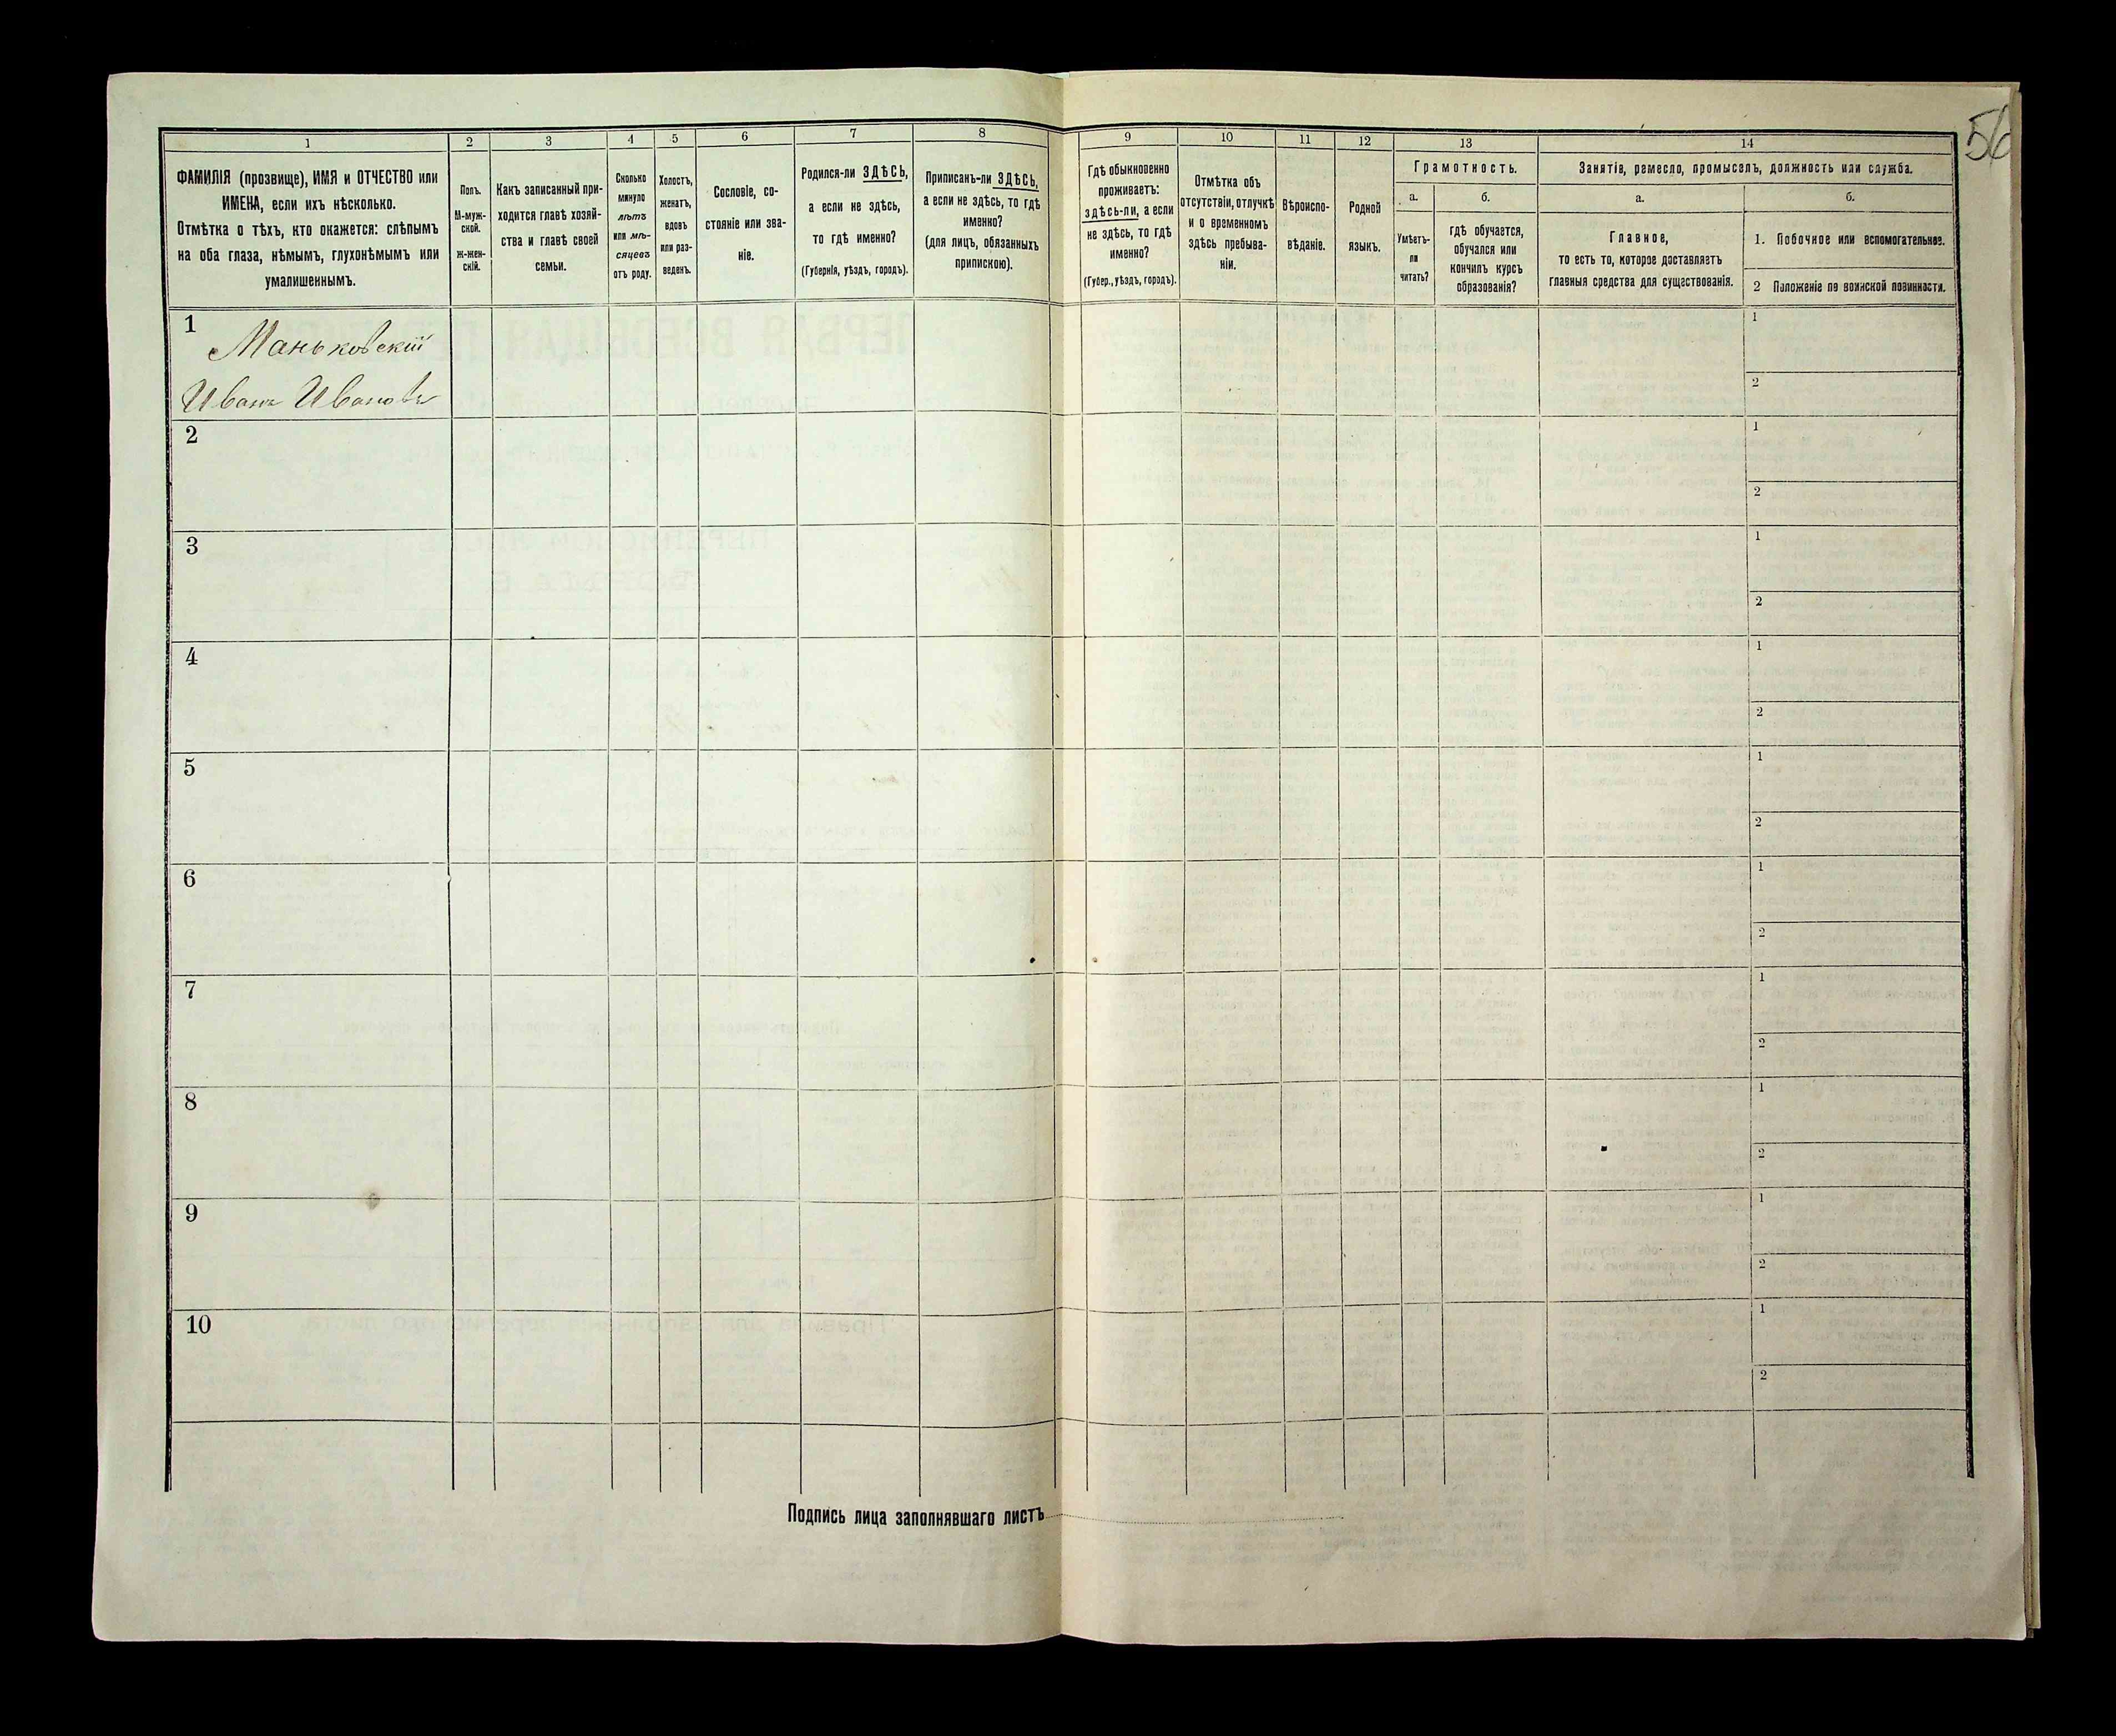 56
1 2 3 4 5 6 7 8 9 10 11 12 13 14
ФАМИЛІЯ (прозвище), ИМЯ и ОТЧЕСТВО или
ИМЕНА, если ихъ нѣсколько.
Отмѣтка о тѣхъ, кто окажется: слѣпымъ
на оба глаза, нѣмымъ, глухонѣмымъ или
умалишеннымъ.
Полъ.
М-муж-
ской.
Ж-жен-
скій.
Какъ записанный при-
ходится главѣ хозяй-
ства и главѣ своей
семьи.
Сколько
минуло
лѣтъ
или мѣ-
сяцевъ
отъ роду.
Холостъ,
женатъ,
вдовъ
или раз-
веденъ.
Сословіе, со-
стояніе или зва-
ніе.
Родился-ли ЗДѢСЬ,
а если не здѣсь,
то гдѣ именно?
(Губернія, уѣздъ, городъ).
Приписанъ-ли ЗДѢСЬ,
а если не здѣсь, то гдѣ
именно?
(для лицъ, обязанныхъ
припискою).
Гдѣ обыкновенно
проживаетъ:
здѣсь-ли, а если
не здѣсь, то гдѣ
именно?
(Губер., уѣздъ, городъ).
Отмѣтка объ
отсутствіи, отлучкѣ
и о временномъ
здѣсь пребыва-
ніи.
Вѣроиспо-
вѣданіе.
Родной
языкъ.
Грамотность.
а.
Умѣетъ-
ли
читать?
б.
гдѣ обучается,
обучался или
кончилъ курсъ
образованія?
Занятіе, ремесло, промыселъ, должность или служба.
а.
Главное,
то есть то, которое доставляетъ
главныя средства для существованія.
б.
1. Побочное или вспомогательное.
2 Положеніе по воинской повинности.
1
Маньковскій
Иванъ Ивановъ
1
2
2
1
2
3
1
2
4
1
2
5
1
2
6
1
2
7
1
2
8
1
2
9
1
2
10
1
2
Подпись лица заполнявшаго листъ